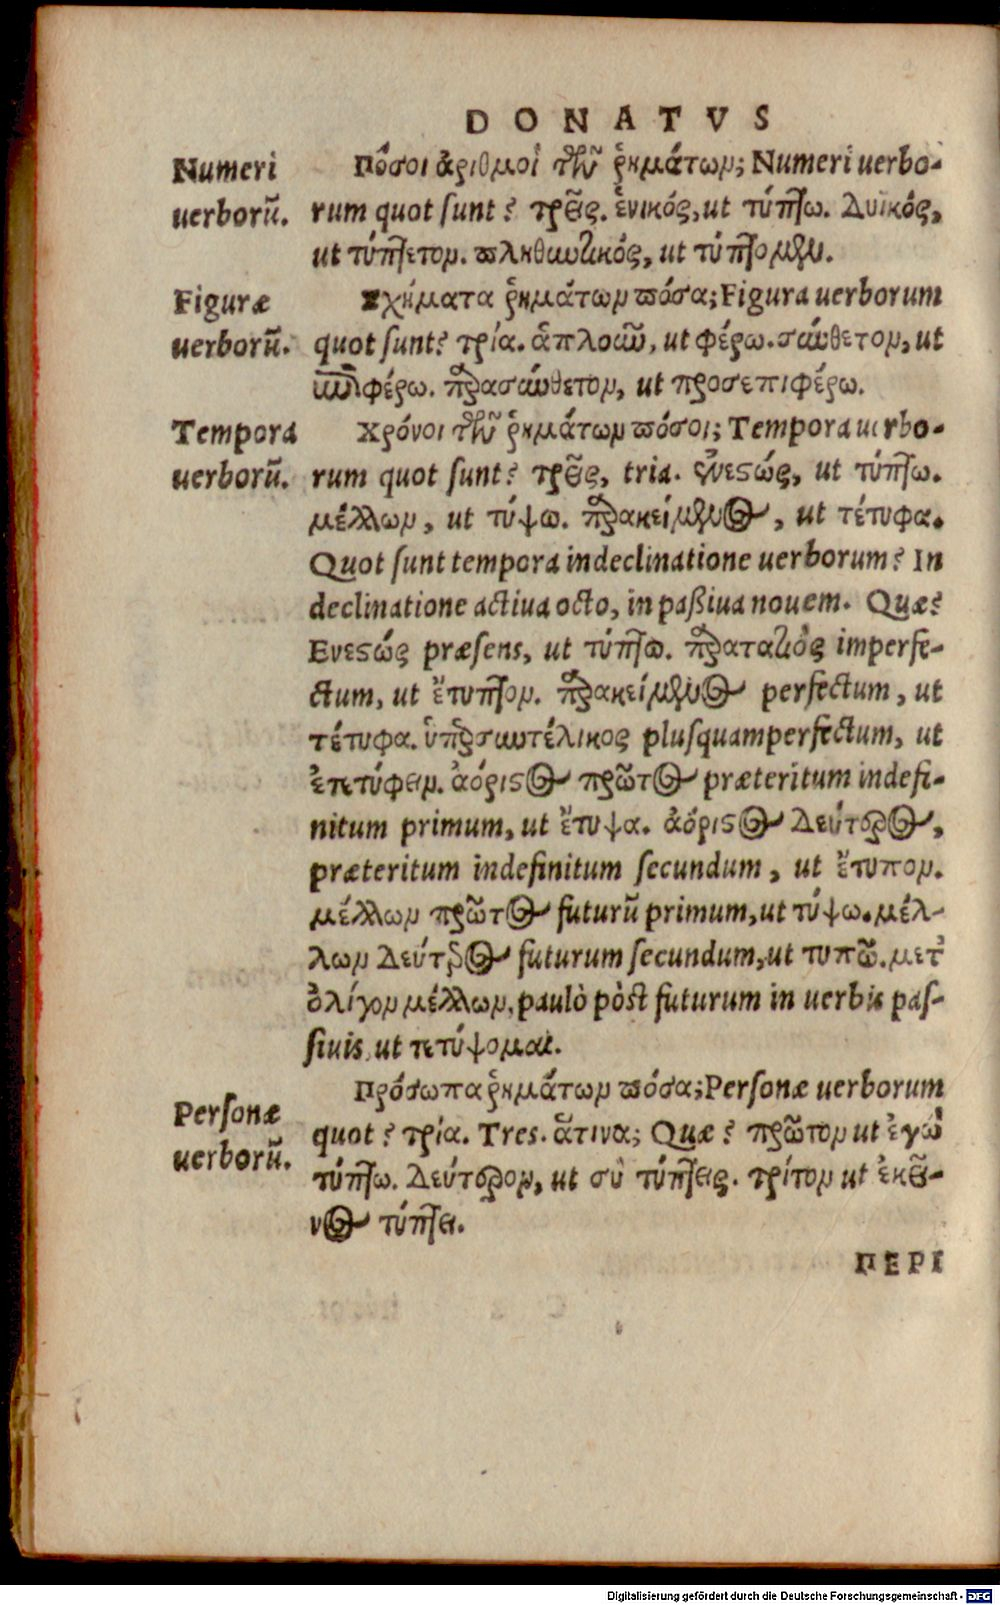 DONATVS
Numeri
uerborũ.
Πόσοι ἀριθμοὶ τῶν ῥημάτων; Numeri uerbo-
rum quot sunt? τρεῖς. ἑνικός, ut τύπτω. Δυικός,
ut τύπτετον. πληθυντικός, ut τύπτομεν.
Figuræ
uerborũ.
Σχήματα ῥημάτων πόσα; Figura uerborum
quot sunt? τρία. ἁπλοῦν, ut φέρω. σύνθετον, ut
ἐπιφέρω. παρασύνθετον, ut προσεπιφέρω.
Tempora
uerborũ.
Χρόνοι τῶν ῥημάτων πόσοι; Tempora uerbo-
rum quot sunt? τρεῖς, tria. ἐνεστώς, ut τύπτω.
μέλλων, ut τύψω. παρακείμενος, ut τέτυφα.
Quot sunt tempora indeclinatione uerborum? In
declinatione actiua octo, in paßiua nouem. Quæ?
Ενεστώς præsens, ut τύπτω. παρατατικὸς imperfe-
ctum, ut ἔτυπτον. παρακείμενος perfectum, ut
τέτυφα. ὑπερσυντέλικος plusquamperfectum, ut
ἐτετύφειν. ἀόριστος πρῶτος præteritum indefi-
nitum primum, ut ἔτυψα. ἀόριστος Δεύτερος,
præteritum indefinitum secundum, ut ἔτυπον.
μέλλων πρῶτος futurũ primum, ut τύψω. μέλ-
λων Δεύτερος futurum secundum, ut τυπῶ. μετ᾽
ὀλίγον μέλλων, paulò pòst futurum in uerbis pas-
siuis, ut τετύψομαι.
Personæ
uerborũ.
Πρόσωπα ῥημάτων πόσα; Personæ uerborum
quot? τρία. Tres. ἅτινα; Quæ? πρῶτον ut ἐγὼ
τύπτω. Δεύτερον, ut σὺ τύπτεις. τρίτον ut ἐκεῖ-
νος τύπτει.
ΠΕΡΙ
Digitalisierung gefördert durch die Deutsche Forschungsgemeinschaft - DFG